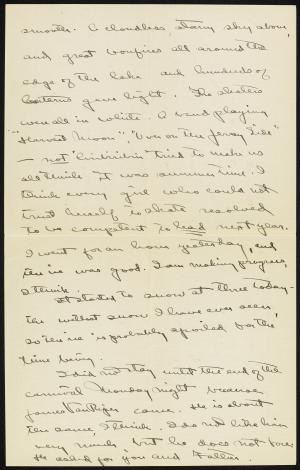 smooth. A cloudless, starry sky above,
and great bonfires all around the
edge of the lake and hundreds of
lanterns gave light. The skaters
were all in white. A band playing
"Harvest Moon", "Over on the Jersey Side"
— not "Ciribiribin" tried to make us
all think it was summer time. I
think every girl who could not
trust herself to skate resolved
to be competent to lead next year.
I went for an hour yesterday, and
the ice was good. I am making progress,
I think.
It started to snow at three today —
the wettest snow I have ever seen,
so the ice is probably spoiled for the
time being.
I did not stay until the end of the
carnival Monday night because
James came. He is about
the same, I think. I do not like him
very much but he does not bore
He asked for you and